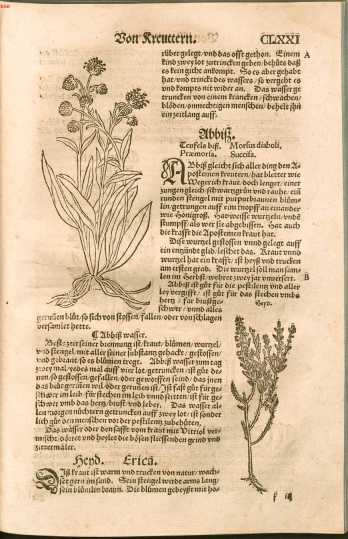 Von Kreuttern. CLXXI
rüber gelegt/ vnd das offt gethon. Einem A
kind zwey lot zutrincken geben/ behüts daß
es kein gicht ankompt. So es aber gehabt
hat/ vnd trinckt des wassers/ so vergeht es
vnd kompts nit wider an. Das wasser
truncken von einem krancken/ schwachen/
blöden/ onmechtigen menschen/ behelt jhn
ein zeitlang auff.
Abbiß.
Teufels biß. Morsus diaboli,
Præmorsa. Succisa.
ABbiß gleicht sich aller ding den A-
postemen kreutern/ hat bletter wie
Wegerich kraut/ doch lenger/ einer
zungen gleich/ schwartzgrün vnd rauhe/ ein
runden stengel mit purpurbraunen blüm-
lin/ getrungen auff ein knopff an einander
wie Hönigroß. Hat weisse wurtzeln/ vnd
stumpff/ als wer sie abgebissen. Hat auch
die krafft die Apostemen kraut hat.
Dise wurtzel gestossen vnnd gelegt auff
ein entzündt glid/ leschet das. Kraut vnnd
wurtzel hat ein krafft/ ist heyß vnd trucken
am ersten grad. Die wurtzel soll man sam-
len im Herbst/ wehret zwey jar vnuersert. B
Abbiß ist gůt für die pestilentz vnd aller
ley vergifft/ ist gůt für das stechen vmbs
hertz/ für Heyd.
schwer/ vnnd alles
gerunnen blůt/ so sich von stossen/ fallen/ oder vonschlagen
versamlet hette.
¶ Abbiß wasser.
Beste zeit seiner brennung ist/ kraut/ blůmen/ wurtzel/
vnd stengel/ mit aller seiner substantz gehackt/ gestossen/
vnd gebrant/ so es blůmen tregt. Abbiß wasser zum tag
zwey mal/ yedes mal auff vier lot getruncken/ ist gůt de-
nen/ so gestossen/ gefallen/ oder geworffen seind/ das jnen
da blůt gerunnen wil/ oder gerunnen ist. Ist fast gůt für ge-
schwer im leib/ für stechen im leib vnnd seitten/ ist für ge-
schwer vmb das hertz/ brust/ vnd leber. Das wasser al-
len morgen nüchtern getruncken auff zwey lot/ ist sonder
lich gůt den menschen vor der pestilentz zubehüten.
Das wasser oder den safft vom kraut mit Vitriol ver-
mischt/ dörret vnd heylet die bösen fliessenden grind vnd
zittermäler.
Heyd. Erica.
DIß kraut ist warm vnd trucken von natur/ wach-
set gern im sand. Sein stengel wirdt arms lang/
sein blümlin braun. Die blůmen gebeyßt mit ho-